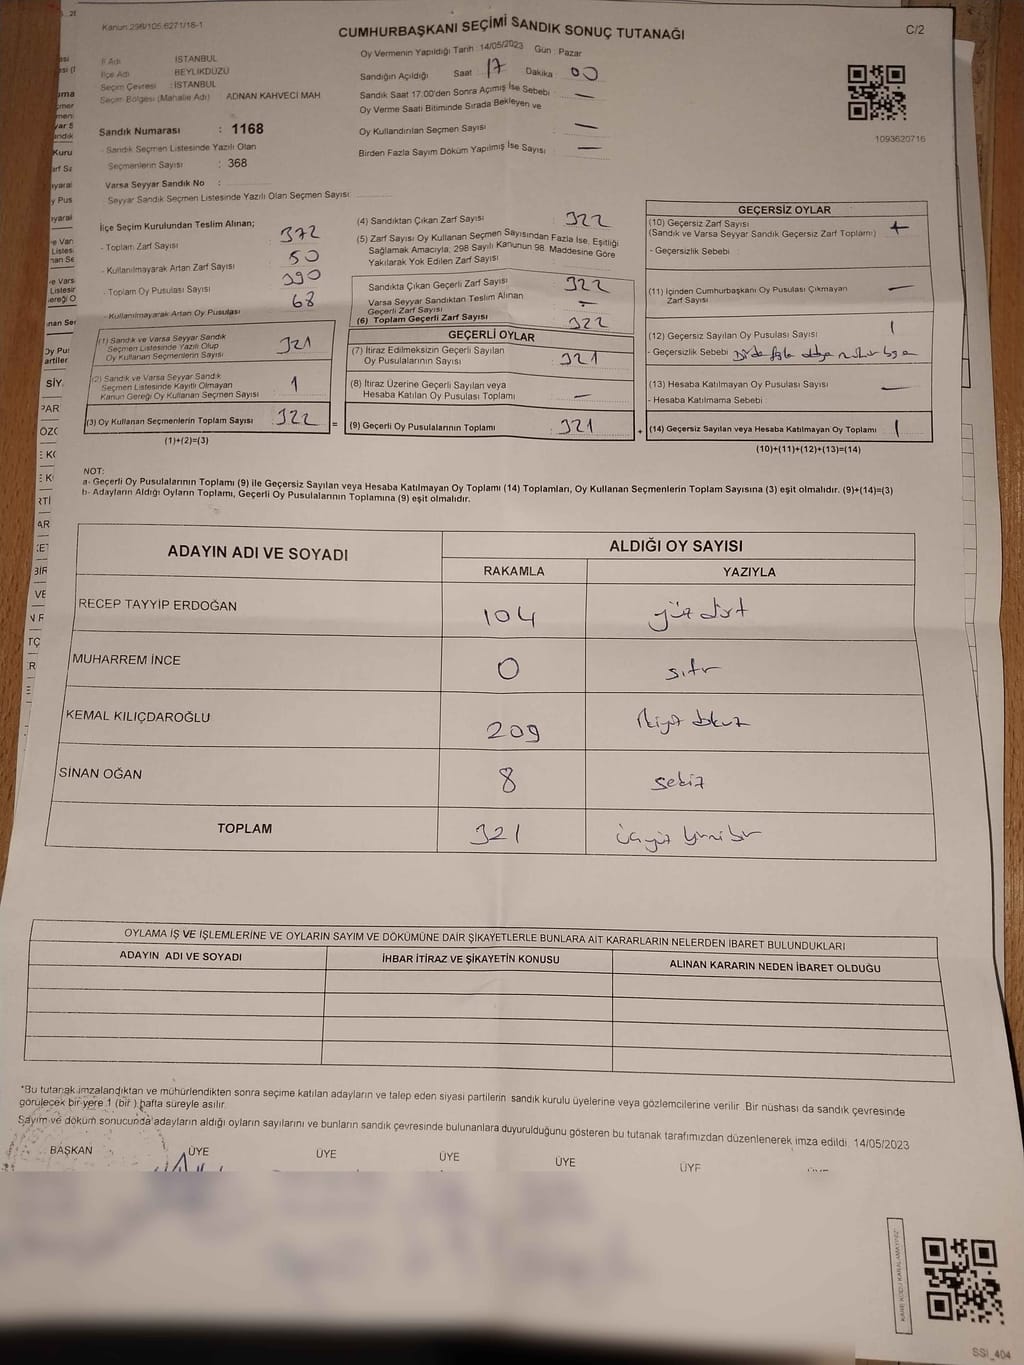 Kanun:298/105.6271/18-1
CUMHURBAŞKANI SEÇİMİ SANDIK SONUÇ TUTANAĞI
C/2
İl Adı İSTANBUL
İlçe Adı BEYLİKDÜZÜ
Seçim Çevresi : İSTANBUL
Seçim Bölgesi (Mahalle Adı) ADNAN KAHVECİ MAH
Sandık Numarası : 1168
- Sandık Seçmen Listesinde Yazılı Olan
Seçmenlerin Sayısı : 368
Varsa Seyyar Sandık No :
Seyyar Sandık Seçmen Listesinde Yazılı Olan Seçmen Sayısı
Oy Vermenin Yapıldığı Tarih : 14/05/2023 Gün : Pazar
Sandığın Açıldığı Saat : 17 Dakika : 00
Sandık Saat 17:00'den Sonra Açımış İse Sebebi : —
Oy Verme Saati Bitiminde Sırada Bekleyen ve
Oy Kullandırılan Seçmen Sayısı : —
Birden Fazla Sayım Döküm Yapılmış İse Sayısı : —
1093620716
İlçe Seçim Kurulundan Teslim Alınan;
- Toplam Zarf Sayısı 372
- Kullanılmayarak Artan Zarf Sayısı 50
- Toplam Oy Pusulası Sayısı 390
- Kullanılmayarak Artan Oy Pusulası 68
(1) Sandık ve Varsa Seyyar Sandık
Seçmen Listesinde Yazılı Olup
Oy Kullanan Seçmenlerin Sayısı 321
(2) Sandık ve Varsa Seyyar Sandık
Seçmen Listesinde Kayıtlı Olmayan
Kanun Gereği Oy Kullanan Seçmen Sayısı 1
(3) Oy Kullanan Seçmenlerin Toplam Sayısı 322
(1)+(2)=(3)
(4) Sandıktan Çıkan Zarf Sayısı 322
(5) Zarf Sayısı Oy Kullanan Seçmen Sayısından Fazla İse, Eşitliği
Sağlamak Amacıyla, 298 Sayılı Kanunun 98. Maddesine Göre
Yakılarak Yok Edilen Zarf Sayısı
Sandıkta Çıkan Geçerli Zarf Sayısı 322
Varsa Seyyar Sandıktan Teslim Alınan
Geçerli Zarf Sayısı —
(6) Toplam Geçerli Zarf Sayısı 322
GEÇERLİ OYLAR
(7) İtiraz Edilmeksizin Geçerli Sayılan
Oy Pusulalarının Sayısı 321
(8) İtiraz Üzerine Geçerli Sayılan veya
Hesaba Katılan Oy Pusulası Toplamı —
= (9) Geçerli Oy Pusulalarının Toplamı 321
GEÇERSİZ OYLAR
(10) Geçersiz Zarf Sayısı
(Sandık ve Varsa Seyyar Sandık Geçersiz Zarf Toplamı)
- Geçersizlik Sebebi
(11) İçinden Cumhurbaşkanı Oy Pusulası Çıkmayan
Zarf Sayısı —
(12) Geçersiz Sayılan Oy Pusulası Sayısı 1
- Geçersizlik Sebebi
(13) Hesaba Katılmayan Oy Pusulası Sayısı —
- Hesaba Katılmama Sebebi
+ (14) Geçersiz Sayılan veya Hesaba Katılmayan Oy Toplamı 1
(10)+(11)+(12)+(13)=(14)
NOT:
a- Geçerli Oy Pusulalarının Toplamı (9) ile Geçersiz Sayılan veya Hesaba Katılmayan Oy Toplamı (14) Toplamları, Oy Kullanan Seçmenlerin Toplam Sayısına (3) eşit olmalıdır. (9)+(14)=(3)
b- Adayların Aldığı Oyların Toplamı, Geçerli Oy Pusulalarının Toplamına (9) eşit olmalıdır.
ADAYIN ADI VE SOYADI ALDIĞI OY SAYISI
RAKAMLA YAZIYLA
RECEP TAYYİP ERDOĞAN 104 yüz dört
MUHARREM İNCE 0 sıfır
KEMAL KILIÇDAROĞLU 209 ikiyüz dokuz
SİNAN OĞAN 8 sekiz
TOPLAM 321 üçyüz yirmi bir
OYLAMA İŞ VE İŞLEMLERİNE VE OYLARIN SAYIM VE DÖKÜMÜNE DAİR ŞİKAYETLERLE BUNLARA AİT KARARLARIN NELERDEN İBARET BULUNDUKLARI
ADAYIN ADI VE SOYADI İHBAR İTİRAZ VE ŞİKAYETİN KONUSU ALINAN KARARIN NEDEN İBARET OLDUĞU
*Bu tutanak imzalandıktan ve mühürlendikten sonra seçime katılan adayların ve talep eden siyasi partilerin sandık kurulu üyelerine veya gözlemcilerine verilir. Bir nüshası da sandık çevresinde
görülecek bir yere 1 (bir) hafta süreyle asılır.
Sayım ve döküm sonucunda adayların aldığı oyların sayılarını ve bunların sandık çevresinde bulunanlara duyurulduğunu gösteren bu tutanak tarafımızdan düzenlenerek imza edildi. 14/05/2023
BAŞKAN ÜYE ÜYE ÜYE ÜYE ÜYE
KARE KODU KARALAMAYINIZ!
SSİ_404